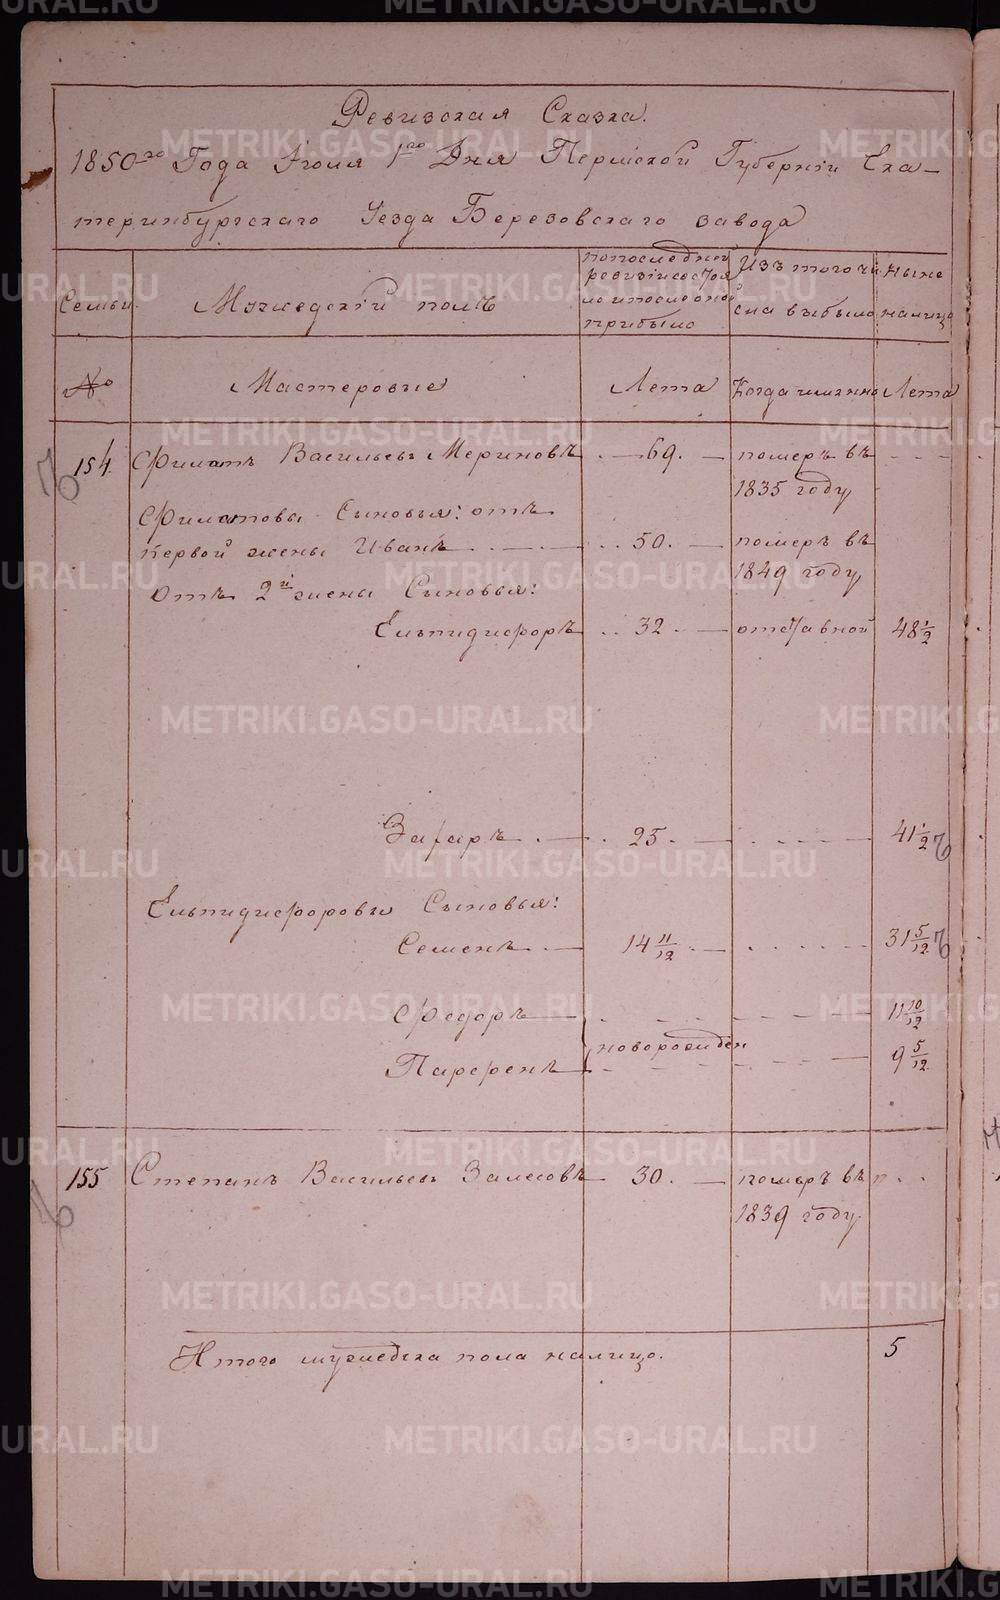 Ревизская Сказка.
1850го Года Июля 1го Дня Пермской Губернiи Ека-
теринбургскаго Уезда Березовскаго завода
Семьи
Мужедскiй полъ
попоследней ревизiи состоя
ло и после оной
прибыло
Изъ того чи
сла выбыло
Ныне
налицо
№ Мастеровые Лета Когда именно Лета
154. Филатъ Васильевъ Мериновъ 69. померъ въ
1835 году
Филатовы Сыновья: отъ
первой жены Иванъ 50. померъ въ
1849 году
отъ 2й жены Сыновья:
Ельпидифоръ 32 отставной 48 1/2
Захаръ 25 41 1/2
Ельпидифоровы Сыновья:
Семенъ 14 11/12 31 5/12
Федоръ 11 10/12
новорожден
Парфенъ 9 5/12
155 Степанъ Васильевъ Залесовъ 30. помьръ въ
1839 году
Итого мужедска пола налицо. 5
METRIKI.GASO-URAL.RU